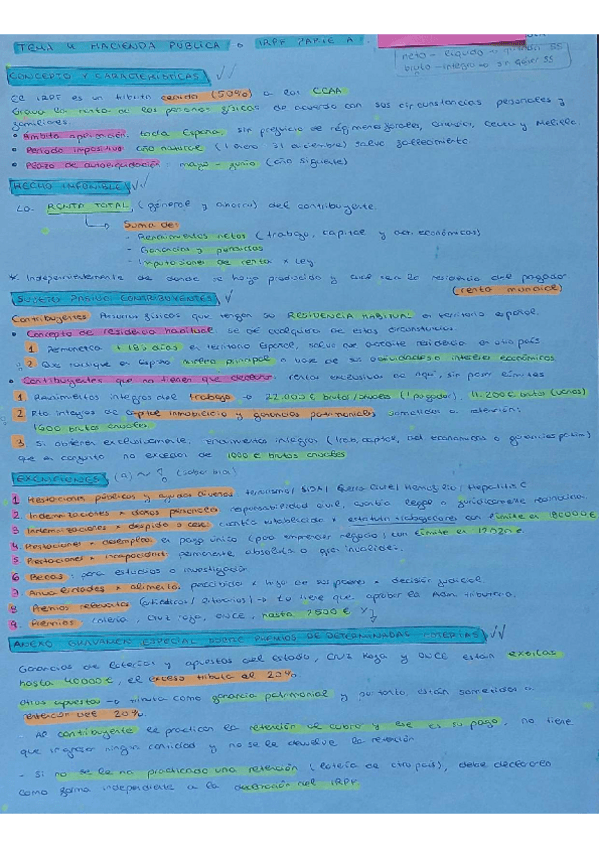 TEMA 4 HACIENDA PUBLICA o IRPF PARTE A
neto - liquido → quitan SS
bruto - integro → sin quitar SS
CONCEPTO Y CARACTERISTICAS
El IRPF es un tributo cedido (50%) a las CCAA
Grava la renta de las personas físicas de acuerdo con sus circunstancias personales y
familiares.
Ambito aplicación: toda España, sin prejuicio de regímenes forales, Canarias, Ceuta y Melilla.
Periodo impositivo año natural (1 enero 31 diciembre) salvo fallecimiento
Plazo de autoliquidación: mayo - junio (año siguiente)
HECHO IMPONIBLE
La RENTA TOTAL (general y ahorro) del contribuyente.
Suma de:
- Rendimientos netos (trabajo, capital y act. económicas)
- Ganancias y perdidas
- Imputaciones de renta x Ley
* Independientemente de donde se haya producido y cual sea la residencia del pagador
(renta mundial)
SUJETO PASIVO CONTRIBUYENTES
Contribuyentes Personas físicas que tengan su RESIDENCIA HABITUAL en territorio español.
Concepto de residencia habitual se dé cualquiera de estas circunstancias.
1 Permanezca + 183 días en territorio Español, salvo que acredite residencia en otro país
2 Que radique en España núcleo principal o base de sus actividades o interés económicos
Contribuyentes que no tienen que declarar rentas exclusivas de aquí, sin pasar límites
1 Rendimientos íntegros del trabajo → 22.000 € brutos/anuales (1 pagador),
2 Rto integros de capital inmobiliario y ganancias patrimoniales sometidos a retención:
1600 brutos anuales.
3 Si obtiene exclusivamente, rendimientos integros (trab, capital, act economicas o ganancias patrim)
que en conjunto no exceda de 1000 € brutos anuales
EXENCIONES (9)
1 Prestaciones públicas y ayudas diversas terrorismo / SIDA / Guerra Civil / Hemofilia / Hepatitis C
2 Indemnizaciones x daños personales responsabilidad civil, cuantía legal o jurídicamente reconocida.
3 Indemnizaciones x despido o cese cuantía establecida x estatuto trabajadores con límite el 180000 €
4 Prestaciones x desempleo en pago único (para emprender negocio)
5 Prestaciones x incapacidad permanente absoluta o gran invalidez.
6 Becas: para estudios o investigación
7 Anualidades x alimento percibida x hijo de sus padres x decisión judicial
8 Premios relevantes (científicos / literarios) → lo tiene que aprobar la Adm. tributaria.
9. Premios: lotería, Cruz roja, once, hasta
ANEXO GRAVAMEN ESPECIAL SOBRE PREMIOS DE DETERMINADAS LOTERÍAS
Ganancias de loterías y apuestas del estado, Cruz Roja y ONCE están exentas
hasta 40000 €, el exceso tributa al 20%
otras apuestas → tributa como ganancia patrimonial y por tanto, están sometidas a
retención del 20%.
Al contribuyente le practican la retención al cobro y ese es su pago, no tiene
que ingresar ningún cantidad y no se le devuelve la retención
- Si no se le ha practicado una retención (lotería de otro país), debe declararlo
como forma independiente a la declaración del IRPF